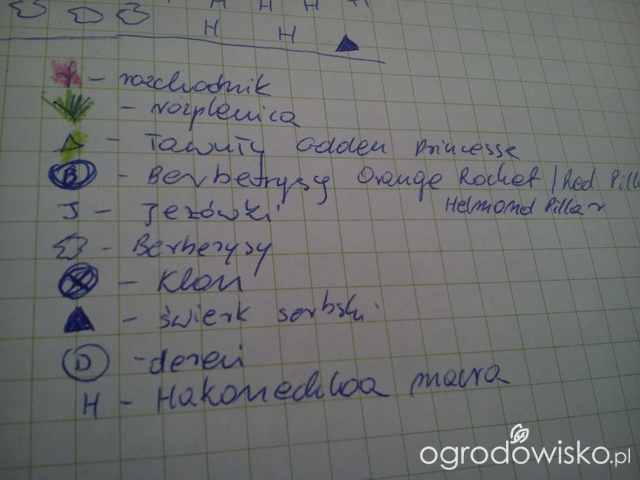 H H H H
H H
- rozchodnik
- rozplenica
- Tawuły Golden princesse
B - Berberysy Orange Rocket / Red Pilla
Helmond Pillar
J - Jeżówki
- Berberysy
- Klon
- świerk serbski
D - dereń
H - Hakonechloa macra
ogrodowisko.pl